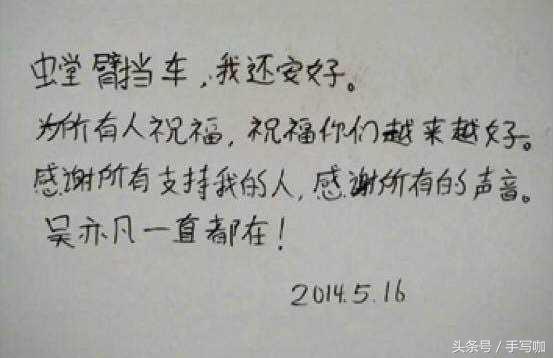 螳臂挡车，我还安好。
为所有人祝福，祝福你们越来越好。
感谢所有支持我的人，感谢所有的声音。
吴亦凡一直都在！
2014.5.16
头条号／手写咖